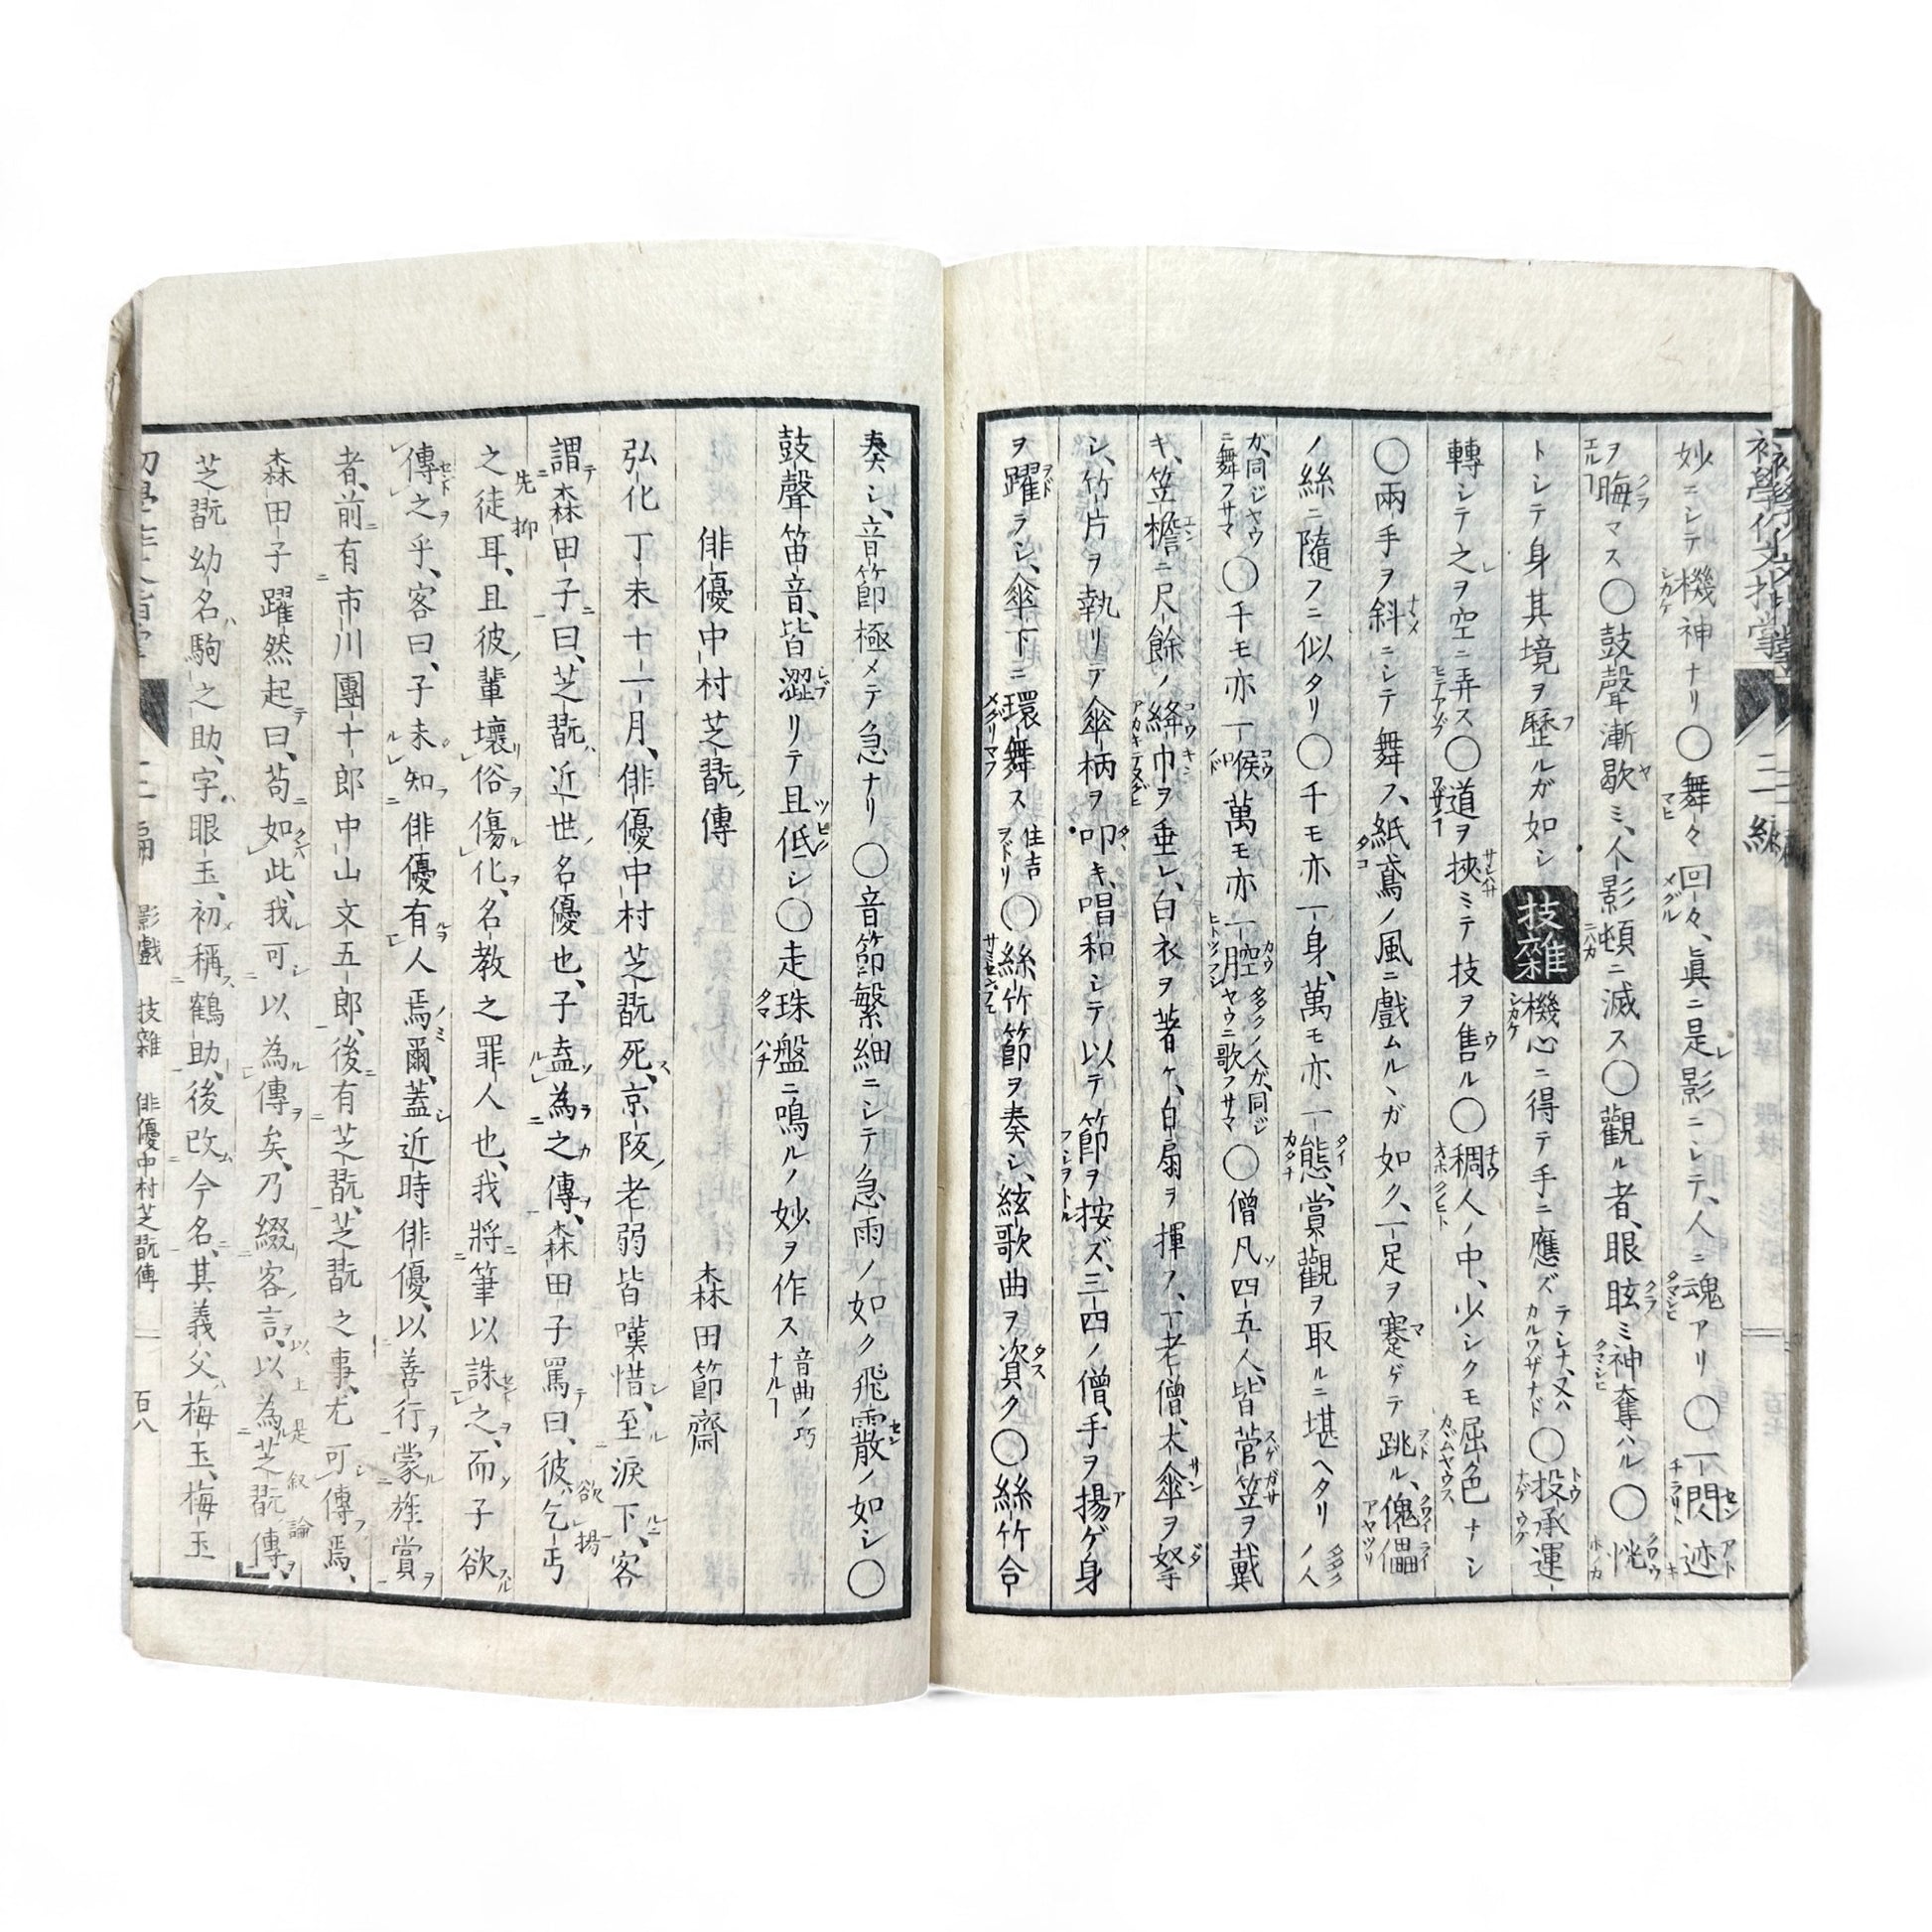 妙ニシテ機神ナリ〇舞々回々、眞ニ是レ影ニシテ、人ニ魂アリ〇一閃迹
ヲ晦マス〇鼓聲漸歇ミ、人影頓ニ滅ス〇觀ル者、眼眩ミ神奪ハル〇恍
トシテ身其境ヲ歷ルガ如シ 雜技 機心ニ得テ手ニ應ズ〇投承運
轉シテ之ヲ空ニ弄ス〇道ヲ挾ミテ技ヲ售ル〇稠人ノ中、少シクモ屈色ナシ
〇兩手ヲ斜ニシテ舞フ、紙鳶ノ風ニ戲ムルヽガ如ク、一足ヲ蹇ゲテ跳ル、傀儡
ノ絲ニ隨フニ似タリ〇千モ亦一身、萬モ亦一態、賞觀ヲ取ルニ堪ヘタリ多クノ人
ガ、同ジヤウニ舞フサマ〇千モ亦一喉萬モ亦一腔多クノ人ガ、同ジヤウニ歌フサマ〇僧凡四五人、皆菅笠ヲ戴
キ、笠檐ニ尺餘ノ絳巾ヲ垂レ、白衣ヲ著ケ、白扇ヲ揮フ、一老僧、大傘ヲ拏
シ、竹片ヲ執リテ傘柄ヲ叩キ、唱和シテ以テ節ヲ按ズ、三四ノ僧、手ヲ揚ゲ身
ヲ躍ラシ、傘下ニ環舞ス住吉ヲドリ〇絲竹節ヲ奏シ、絃歌曲ヲ資ク〇絲竹合
奏シ、音節極メテ急ナリ〇音節繁細ニシテ急雨ノ如ク飛霰ノ如シ〇
鼓聲笛音、皆澀リテ且低シ〇走珠盤ニ鳴ルノ妙ヲ作ス音曲ノ巧ナルヿ
俳優中村芝翫傳
森田節齋
弘化丁未十一月、俳優中村芝翫死、京阪老弱皆嘆惜、至淚下、客
謂森田子曰、芝翫、近世名優也、子盍為之傳、森田子罵曰、彼乞丐
之徒耳、且彼輩壞俗傷化、名教之罪人也、我將筆以誅之、而子欲
傳之乎、客曰、子未知俳優有人焉爾、蓋近時俳優、以善行蒙旌賞
者、前有市川團十郎中山文五郎、後有芝翫、芝翫之事、尤可傳焉、
森田子躍然起曰、苟如此、我可以為傳矣、乃綴客言、以為芝翫傳、
芝翫幼名駒之助、字眼玉、初稱鶴助、後改今名、其義父梅玉、梅玉
先抑
欲揚
以上是叙論
三編
影戲 技雜 俳優中村芝翫傳
百八